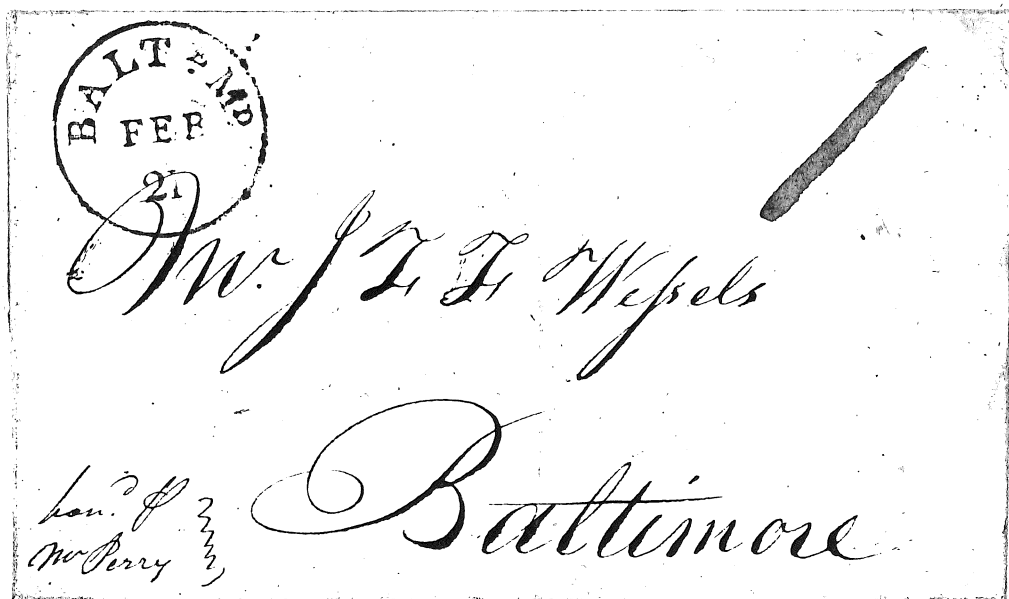 BALT. Md
FEB
21
1
Mr. J F F Wessels
Baltimore
hond. P
Mr Perry